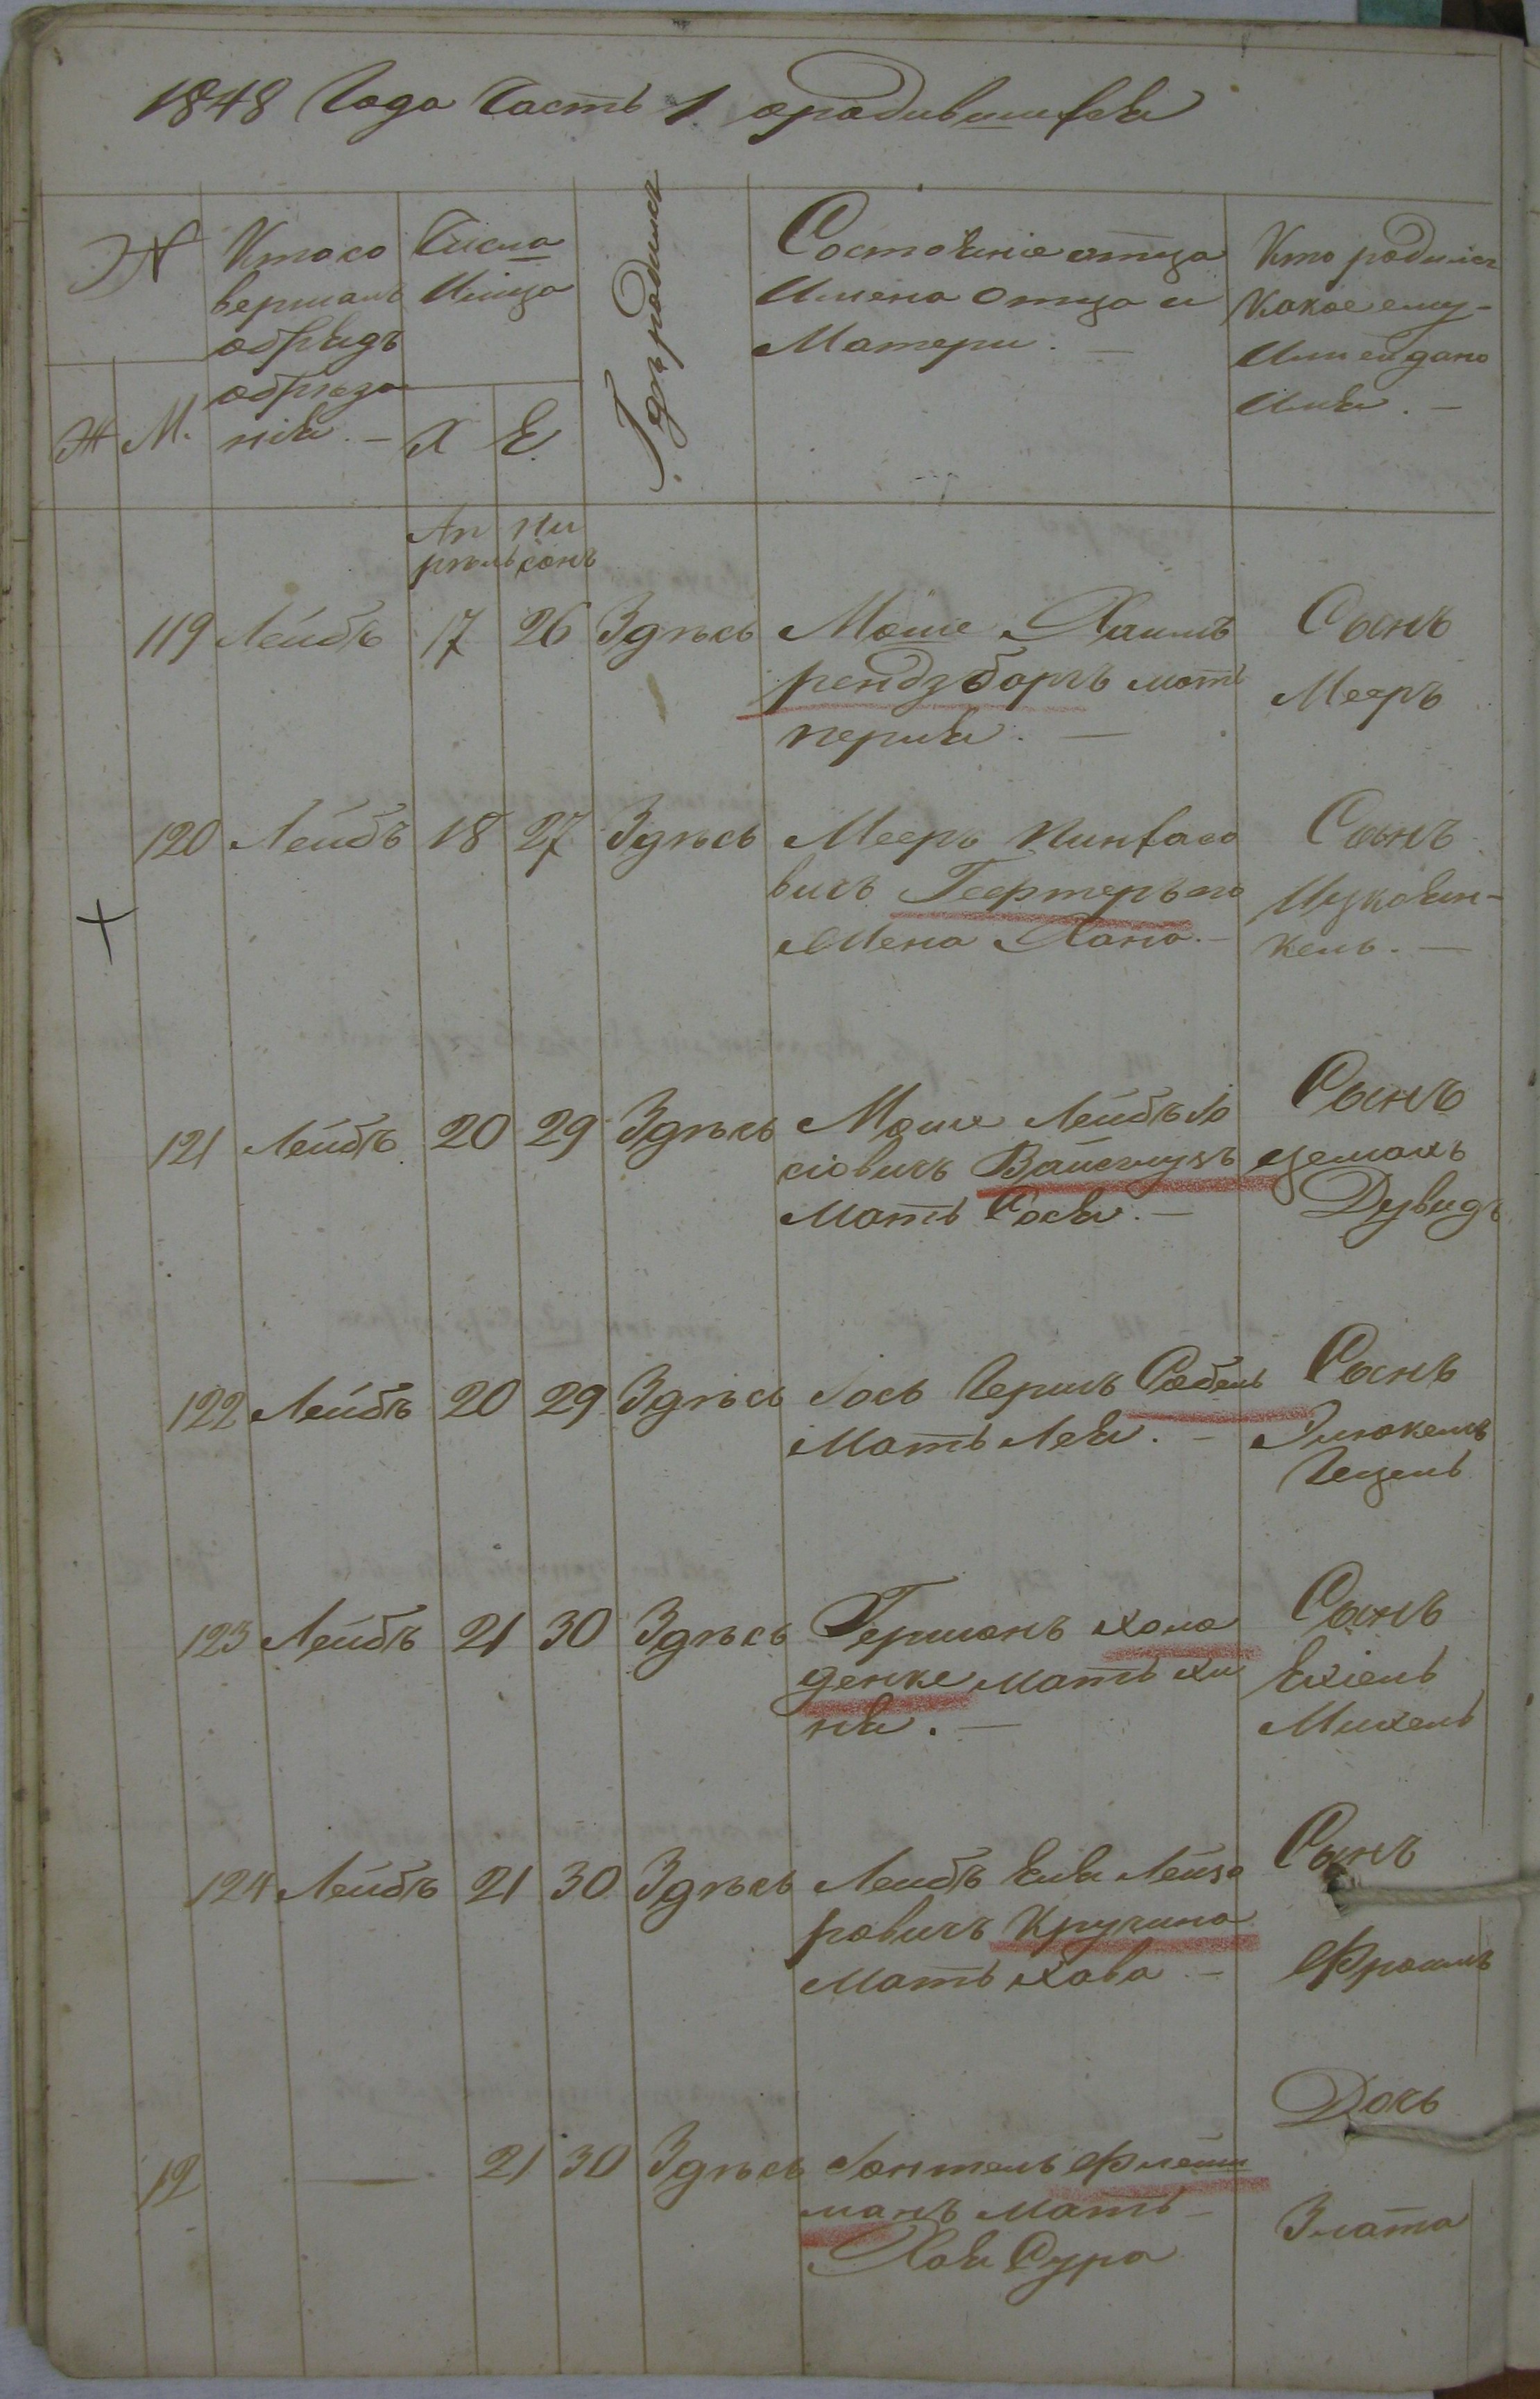 1848 Года Часть 1 ородившихся
№
Ж М.
Кто со
вершалъ
обрядъ
обрѣза
нія. —
Числа
Мѣсяца
Х Е.
Гдѣ родился
Состояніе отца
Имена отца и
Матери. —
Кто родился
Какое ему -
Или ей дано
Имя. —
Ап
рѣль
Ни
сонъ
119 Лейбъ 17 26 Здѣсь Моше Хаимъ
рендзборгъ мать
перля. —
Сынъ
Мееръ
120 Лейбъ 18 27 Здѣсь Мееръ Пинхасо
вичъ Геертеръ его
Жена Хана. —
Сынъ
Ицко Ян-
кель. —
121 Лейбъ 20 29 Здѣсь Моше Лейбъ Іо
сіовичъ Вайсмузъ
Мать Сося. —
Сынъ
цемахъ
Дувидъ
122 Лейбъ 20 29 Здѣсь Іось Гершъ Собель
Мать Лея. —
Сынъ
Гецель
123 Лейбъ 21 30 Здѣсь Гершонъ холо
денке мать хи
ня. —
Сынъ
Ехіель
Михель
124 Лейбъ 21 30 Здѣсь Лейбъ Еля Лейзе
ровичъ Кручина
Мать хава —
Сынъ
Фроимъ
12 — 21 30 Здѣсь Іонтель Флейш
манъ мать -
Хая Сура
Дочь
Злата